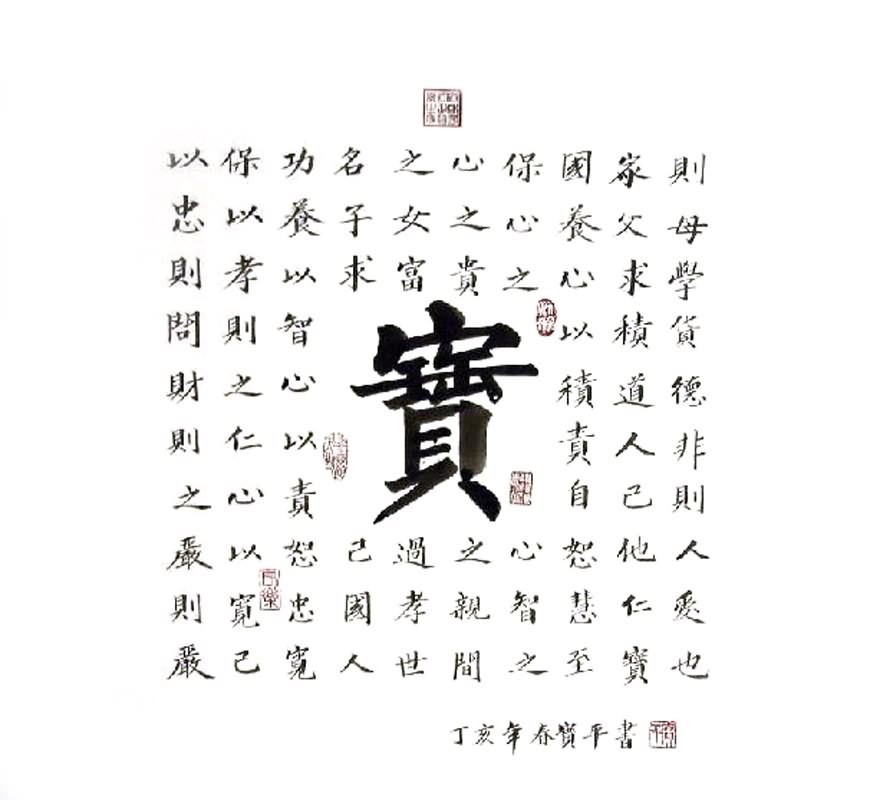 則母學貨德非則人愛也
家父求積道人己他仁寶
國養心以積責自恕慧至
保心之心智之
心之貴之親間
之女富過孝世
名子求己國人
功養以智心以責恕忠寬
保以孝則之仁心以寬己
以忠則問財則之嚴則嚴
寶
丁亥年春寶平書